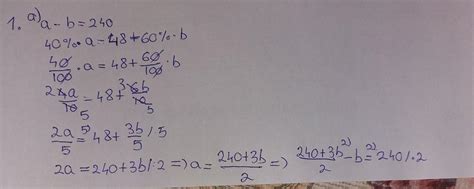 1. a) a - b = 240
40% · a = 48 + 60% · b
40/100 · a = 48 + 60/100 · b
2 4a/10 5 = 48 + 3 6b/10 5
2a/5 5) = 48 + 3b/5 / 5
2a = 240 + 3b / · 2 => a = 240+3b/2 => 240+3b/2 2) - b = 2) 240 / · 2